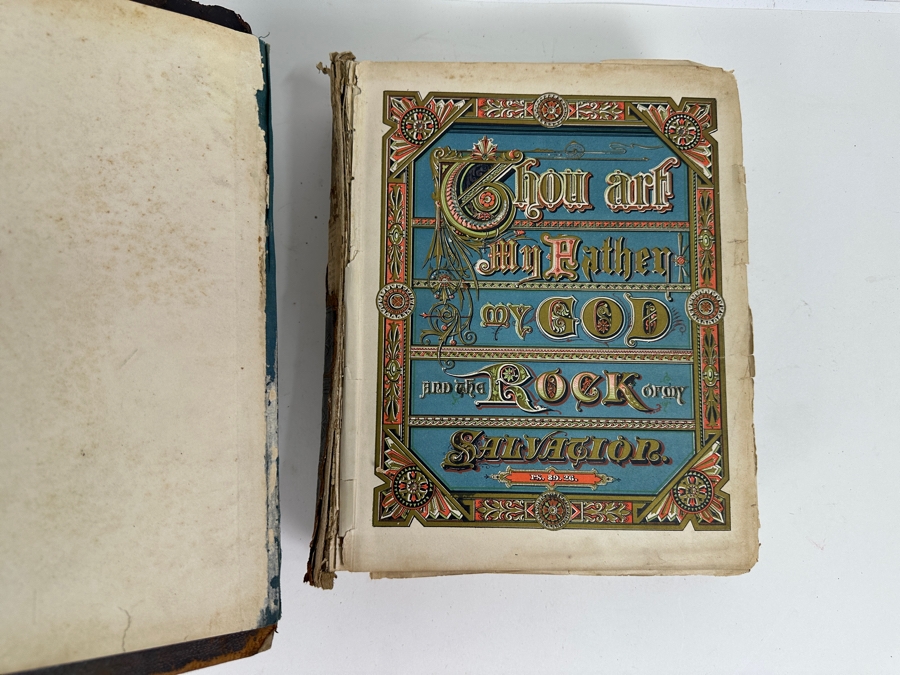 Thou art
My Father
my GOD
AND the ROCK OF MY
SALVATION.
PS. 89. 26.